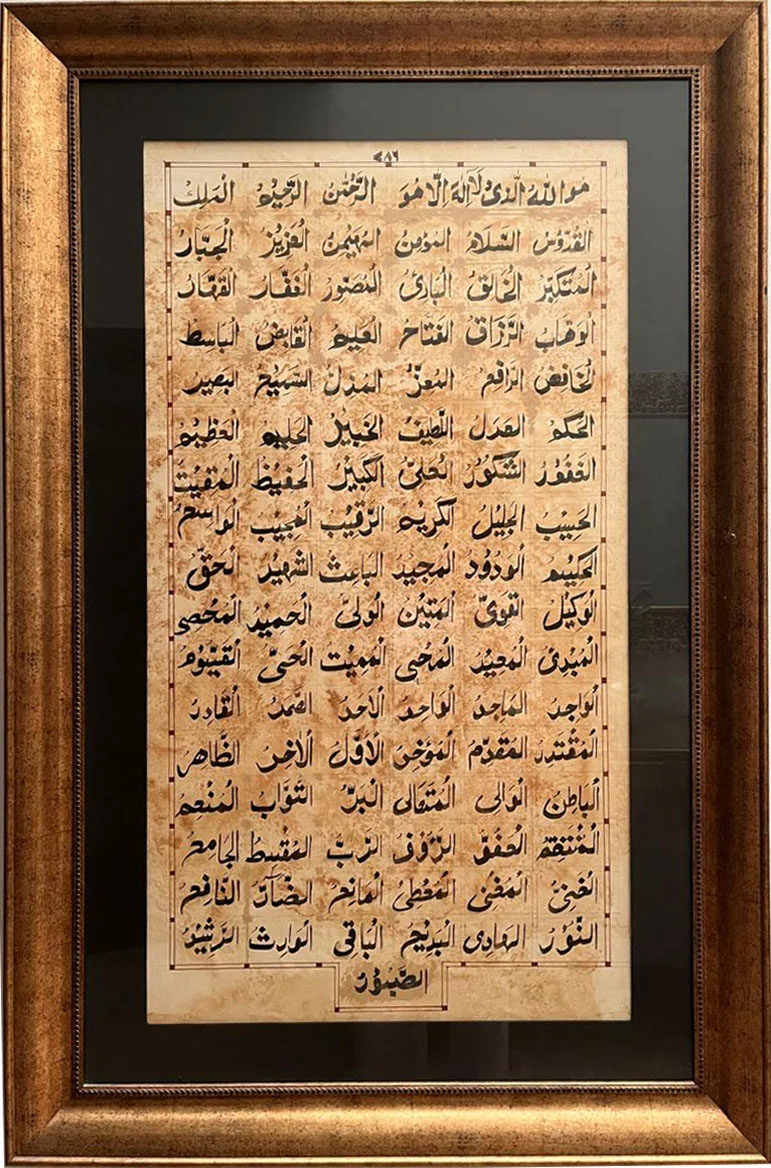 ٧٨٦
هُوَ اللهُ الَّذِىْ لَآ اِلٰهَ اِلَّا هُوَ الرَّحْمٰنُ الرَّحِيْمُ الْمَلِكُ
الْقُدُّوْسُ السَّلَامُ الْمُؤْمِنُ الْمُهَيْمِنُ الْعَزِيْزُ الْجَبَّارُ
الْمُتَكَبِّرُ الْخَالِقُ الْبَارِئُ الْمُصَوِّرُ الْغَفَّارُ الْقَهَّارُ
الْوَهَّابُ الرَّزَّاقُ الْفَتَّاحُ الْعَلِيْمُ الْقَابِضُ الْبَاسِطُ
الْخَافِضُ الرَّافِعُ الْمُعِزُّ الْمُذِلُّ السَّمِيْعُ الْبَصِيْرُ
الْحَكَمُ الْعَدْلُ اللَّطِيْفُ الْخَبِيْرُ الْحَلِيْمُ الْعَظِيْمُ
الْغَفُوْرُ الشَّكُوْرُ الْعَلِىُّ الْكَبِيْرُ الْحَفِيْظُ الْمُقِيْتُ
الْحَسِيْبُ الْجَلِيْلُ الْكَرِيْمُ الرَّقِيْبُ الْمُجِيْبُ الْوَاسِعُ
الْحَكِيْمُ الْوَدُوْدُ الْمَجِيْدُ الْبَاعِثُ الشَّهِيْدُ الْحَقُّ
الْوَكِيْلُ الْقَوِىُّ الْمَتِيْنُ الْوَلِىُّ الْحَمِيْدُ الْمُحْصِى
الْمُبْدِئُ الْمُعِيْدُ الْمُحْىِ الْمُمِيْتُ الْحَىُّ الْقَيُّوْمُ
الْوَاجِدُ الْمَاجِدُ الْوَاحِدُ الْاَحَدُ الصَّمَدُ الْقَادِرُ
الْمُقْتَدِرُ الْمُقَدِّمُ الْمُؤَخِّرُ الْاَوَّلُ الْاٰخِرُ الظَّاهِرُ
الْبَاطِنُ الْوَالِى الْمُتَعَالِى الْبَرُّ التَّوَّابُ الْمُنْعِمُ
الْمُنْتَقِمُ الْعَفُوُّ الرَّؤُوْفُ الرَّبُّ الْمُقْسِطُ الْجَامِعُ
الْغَنِىُّ الْمُغْنِى الْمُعْطِىُ الْمَانِعُ الضَّآرُّ النَّافِعُ
النُّوْرُ الْهَادِى الْبَدِيْعُ الْبَاقِى الْوَارِثُ الرَّشِيْدُ
الصَّبُوْرُ